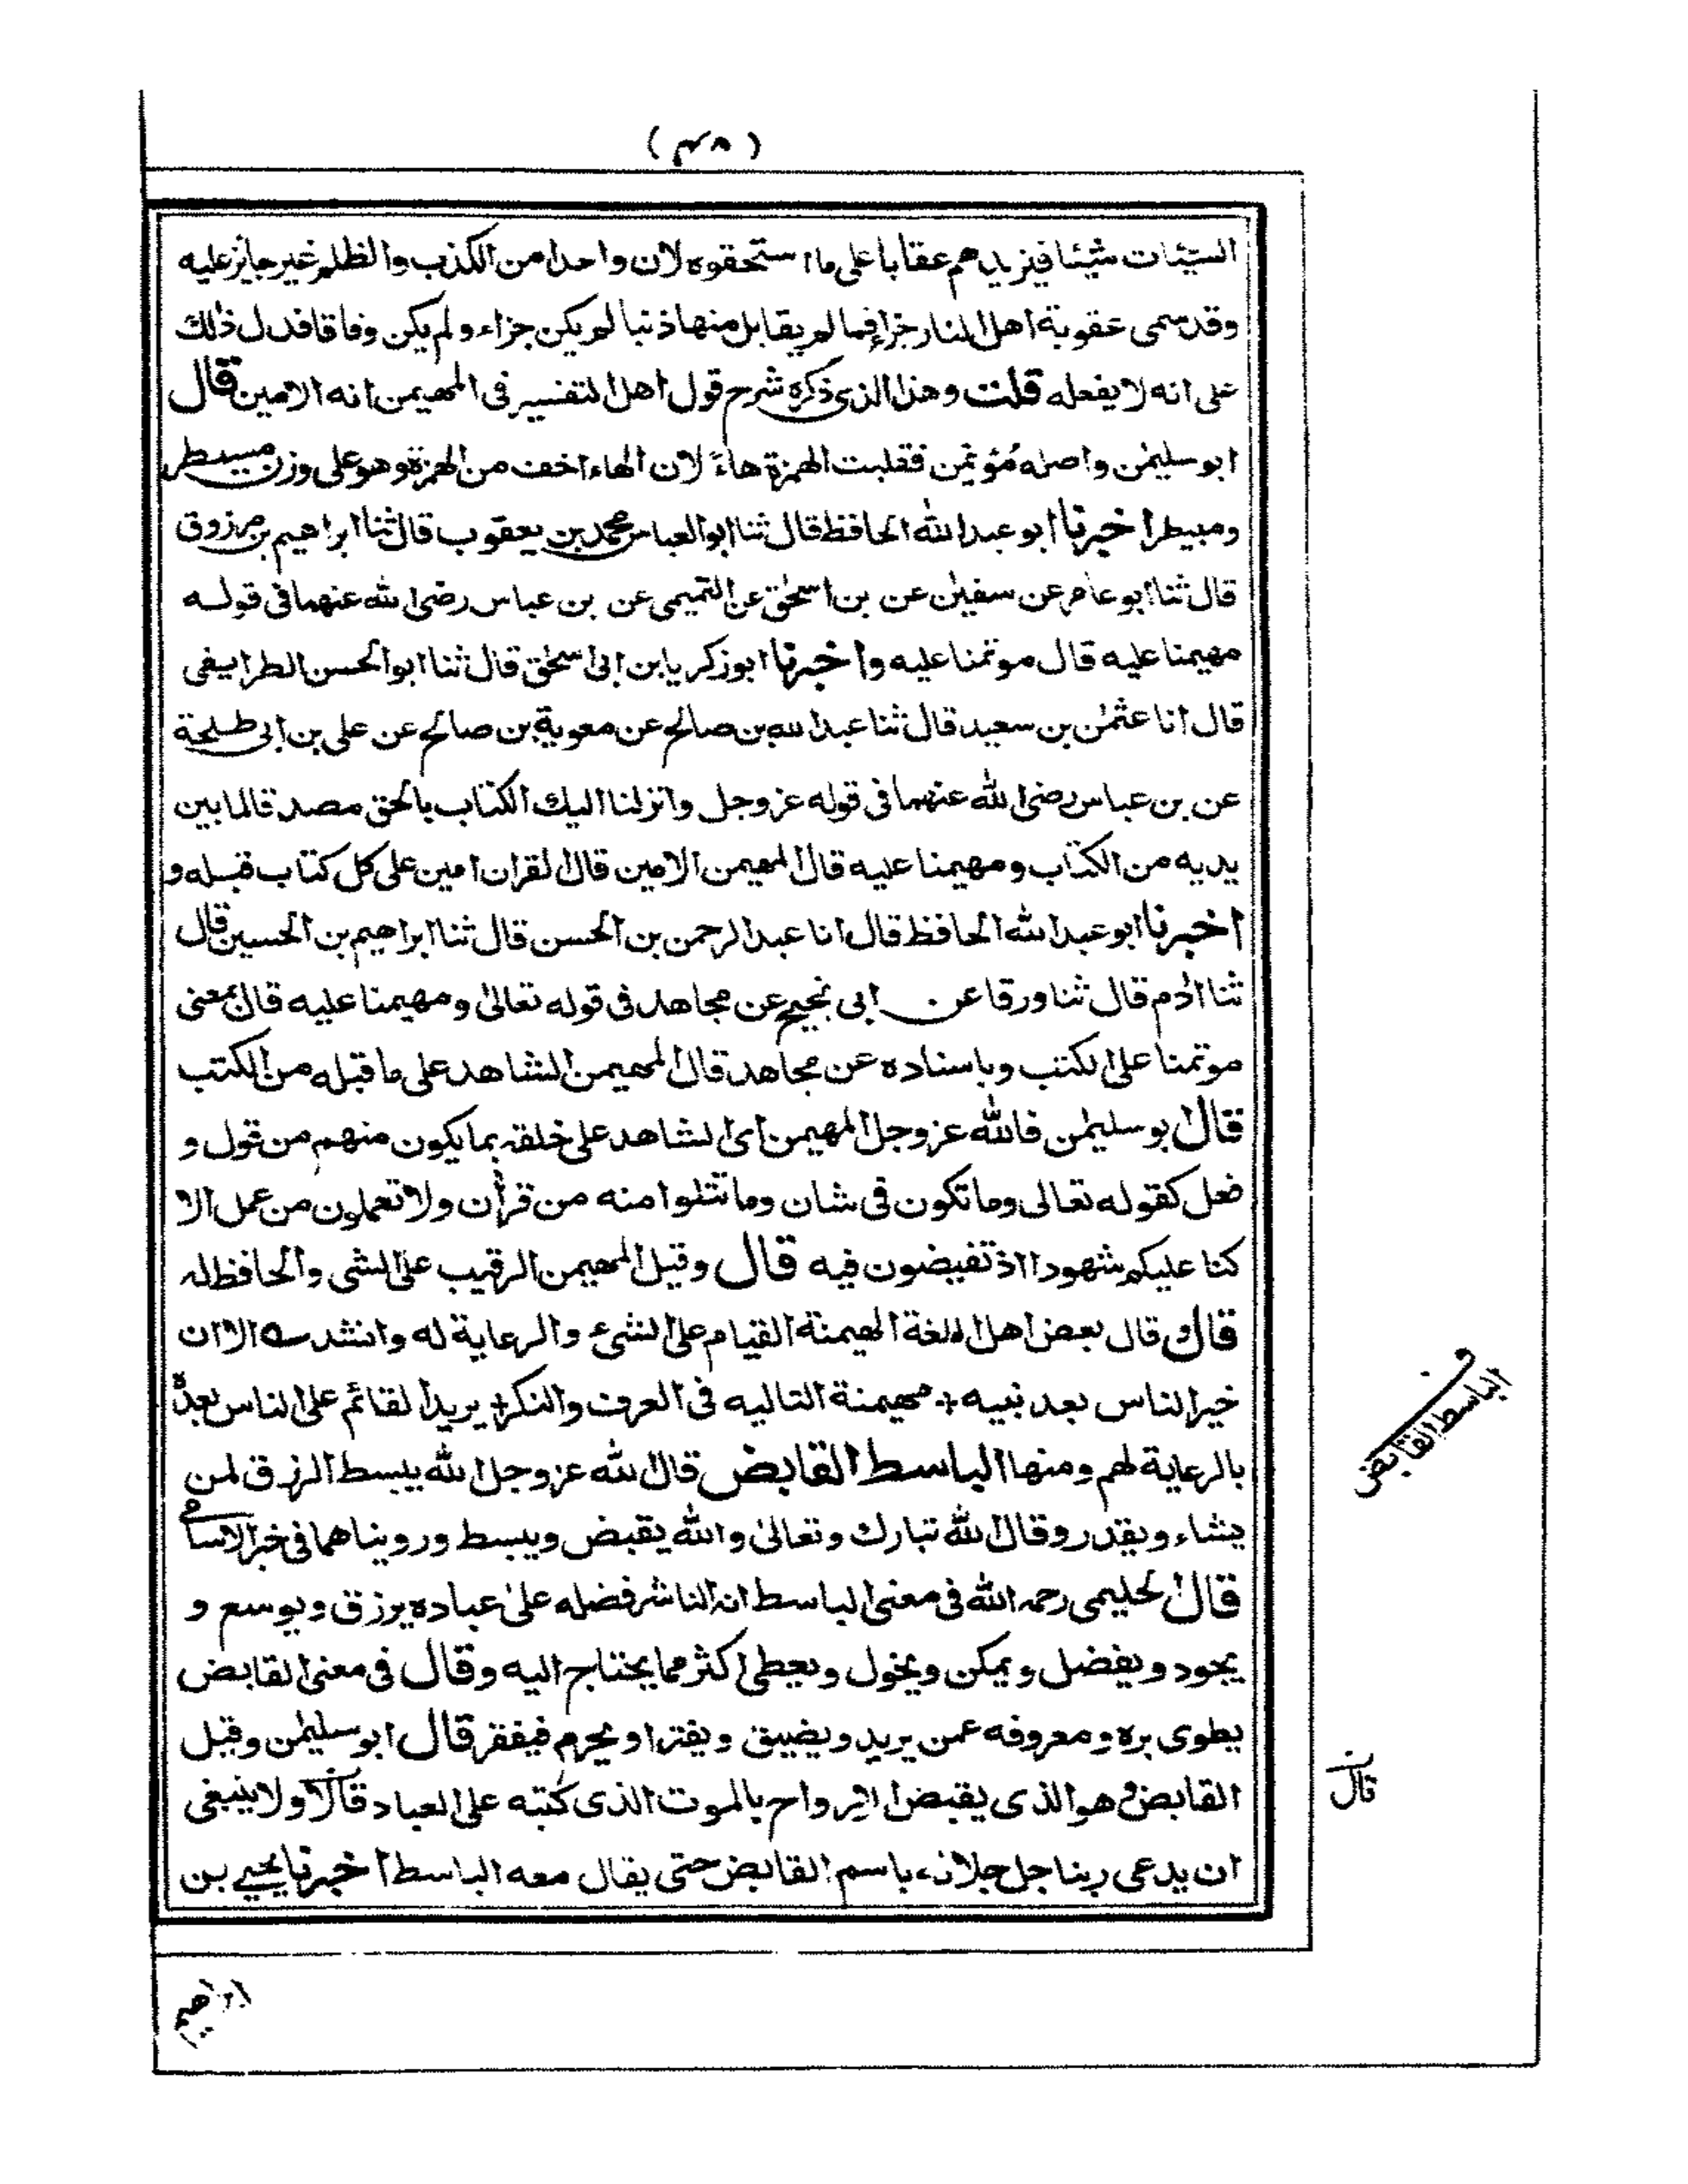 (٤٨)
السيّئات شيئا فيزيدهم عقابا على ما استحقوه لان واحدا من الكذب والظلم غير جايز عليه
وقد سمى عقوبة اهل النار جزاء فما لم يقابل منها ذنبا لم يكن جزاء ولم يكن وفاقا فدل ذلك
على انه لا يفعله قلت وهذا الذى ذكره شرح قول اهل التفسير فى المهيمن انه الامين قال
ابو سليمٰن واصله مُؤيمن فقلبت الهمزة هاءً لان الهاء اخف من الهمزة وهو على وزن مسيطر
ومبيطر اخبرنا ابو عبد الله الحافظ قال ثنا ابو العباس محمد بن يعقوب قال ثنا ابراهيم بن مرزوق
قال ثنا ابو عامر عن سفيٰن عن بن اسحٰق عن التميمى عن بن عباس رضى الله عنهما فى قوله
مهيمنا عليه قال موتمنا عليه واخبرنا ابو زكريا بن ابى اسحٰق قال ثنا ابو الحسن الطرايفى
قال انا عثمٰن بن سعيد قال ثنا عبد الله بن صالح عن معوية بن صالح عن على بن ابى طلحة
عن بن عباس رضى الله عنهما فى قوله عز وجل وانزلنا اليك الكتاب بالحق مصدقا لما بين
يديه من الكتاب ومهيمنا عليه قال المهيمن الامين قال القران امين على كل كتاب قبله و
اخبرنا ابو عبد الله الحافظ قال انا عبد الرحمن بن الحسن قال ثنا ابراهيم بن الحسين قال
ثنا اٰدم قال ثنا ورقا عن ابى نجيح عن مجاهد فى قوله تعالىٰ ومهيمنا عليه قال بمعنى
موتمنا على الكتب وباسناده عن مجاهد قال المهيمن الشاهد على ما قبله من الكتب
قال ابو سليمٰن فالله عز وجل المهيمن اى الشاهد على خلقه بما يكون منهم من قول و
فعل كقوله تعالى وما تكون فى شان وما تتلوا منه من قرأن ولا تعملون من عمل الا
كنا عليكم شهودا اذ تفيضون فيه قال وقيل المهيمن الرقيب على الشى والحافظ له
قال قال بعض اهل اللغة الهيمنة القيام على الشىء والرعاية له وانشد سه الا ان
خير الناس بعد نبيه + مهيمنة التاليه فى العرف والنكر + يريد القائم على الناس بعدهٗ
بالرعاية لهم ومنها الباسط القابض قال الله عز وجل الله يبسط الرزق لمن
يشاء ويقدر وقال الله تبارك وتعالىٰ والله يقبض ويبسط وروينا هما فى خبر الاسامى
قال الحليمى رحمه الله فى معنى الباسط انه الناشر فضله علىٰ عباده يرزق ويوسع و
يجود ويفضل ويمكن ويخول ويعطى اكثر مما يحتاج اليه وقال فى معنى القابض
يطوى بره ومعروفه عمن يريد ويضيق ويقتر او يحرم فيفقر قال ابو سليمٰن وقيل
القابض هو الذى يقبض الارواح بالموت الذى كتبه على العباد قالا ولا ينبغى
ان يدعى ربنا جل جلاله باسم القابض حتى يقال معه الباسط اخبرنا يحيى بن
الباسط القابض
قال
ابراهيم